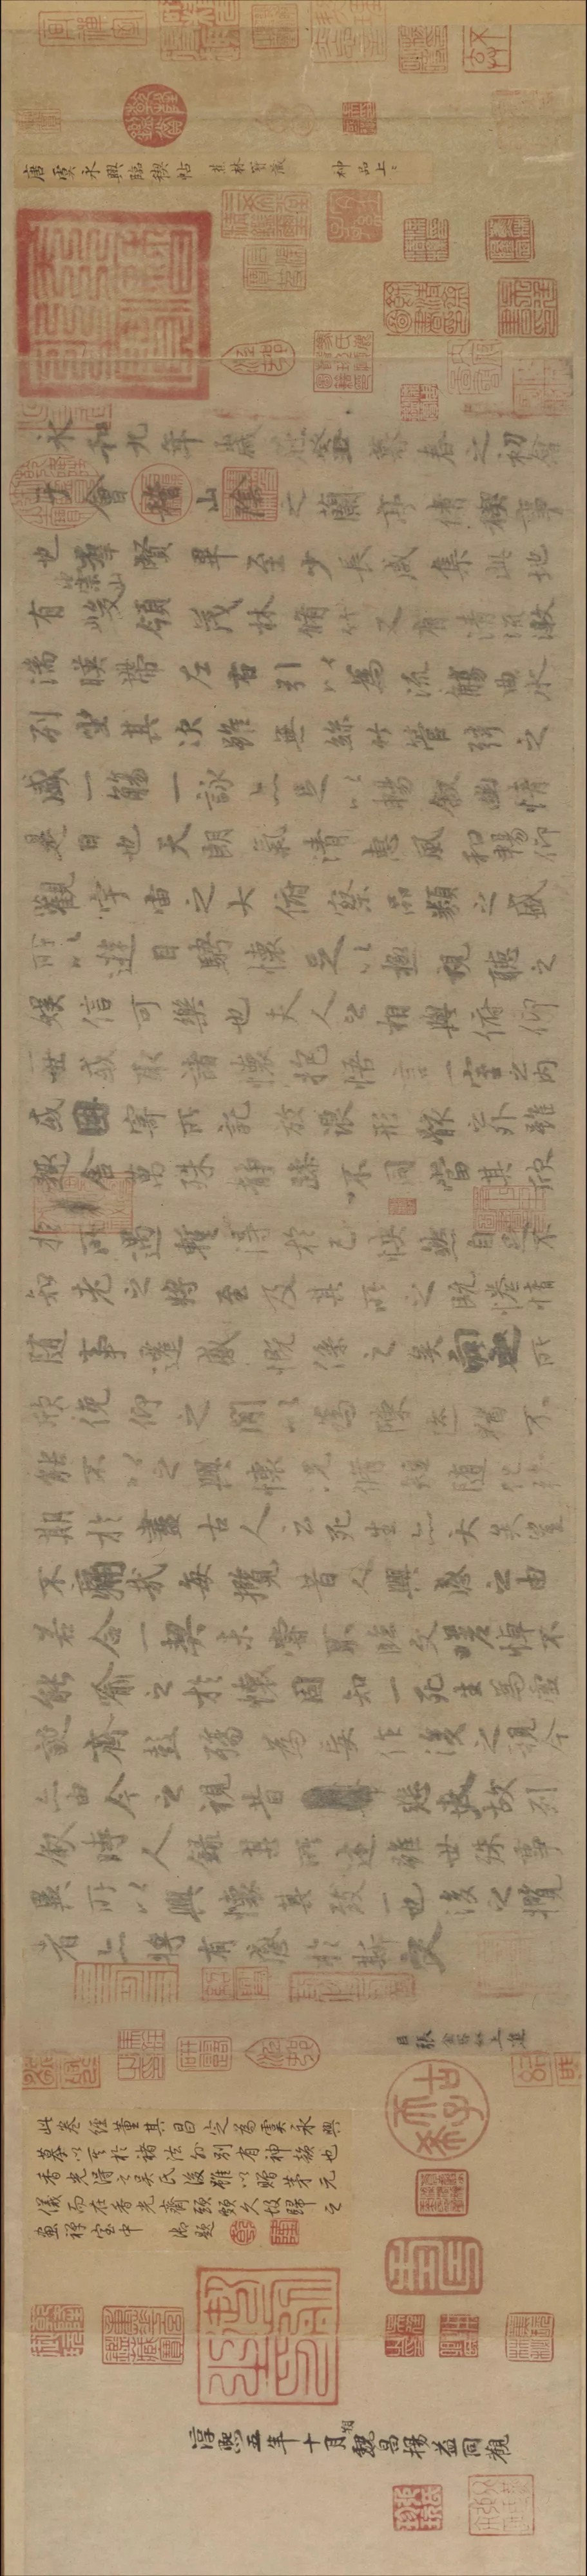 唐虞永興臨稧帖 蕉林寶藏 神品上上
永和九年歲在癸丑暮春之初會
于會稽山陰之蘭亭脩稧事
也羣賢畢至少長咸集此地
有崇山峻領茂林脩竹又有清流激
湍暎帶左右引以為流觴曲水
列坐其次雖無絲竹管弦之
盛一觴一詠亦足以暢敘幽情
是日也天朗氣清惠風和暢仰
觀宇宙之大俯察品類之盛
所以遊目騁懷足以極視聽之
娛信可樂也夫人之相與俯仰
一世或取諸懷抱悟言一室之內
或因寄所託放浪形骸之外雖
趣舍萬殊靜躁不同當其欣
於所遇暫得於己怏然自足不
知老之將至及其所之既惓情
隨事遷感慨係之矣向之所
欣俛仰之閒以為陳迹猶不
能不以之興懷況脩短隨化終
期於盡古人云死生亦大矣豈
不痛哉每攬昔人興感之由
若合一契未嘗不臨文嗟悼不
能喻之於懷固知一死生為虛
誕齊彭殤為妄作後之視今
亦由今之視昔悲夫故列
敘時人錄其所述雖世殊事
異所以興懷其致一也後之攬
者亦將有感於斯文
臣張金界奴上進
此卷經董其昌定為虞永興
摹以其於褚法外別有神韻也
香光得之吳氏後雖以贈茅元
儀而在香光齋頭頗久故歸之
畫禪室中 御題
淳熙五年十月朔魏昌楊益同觀